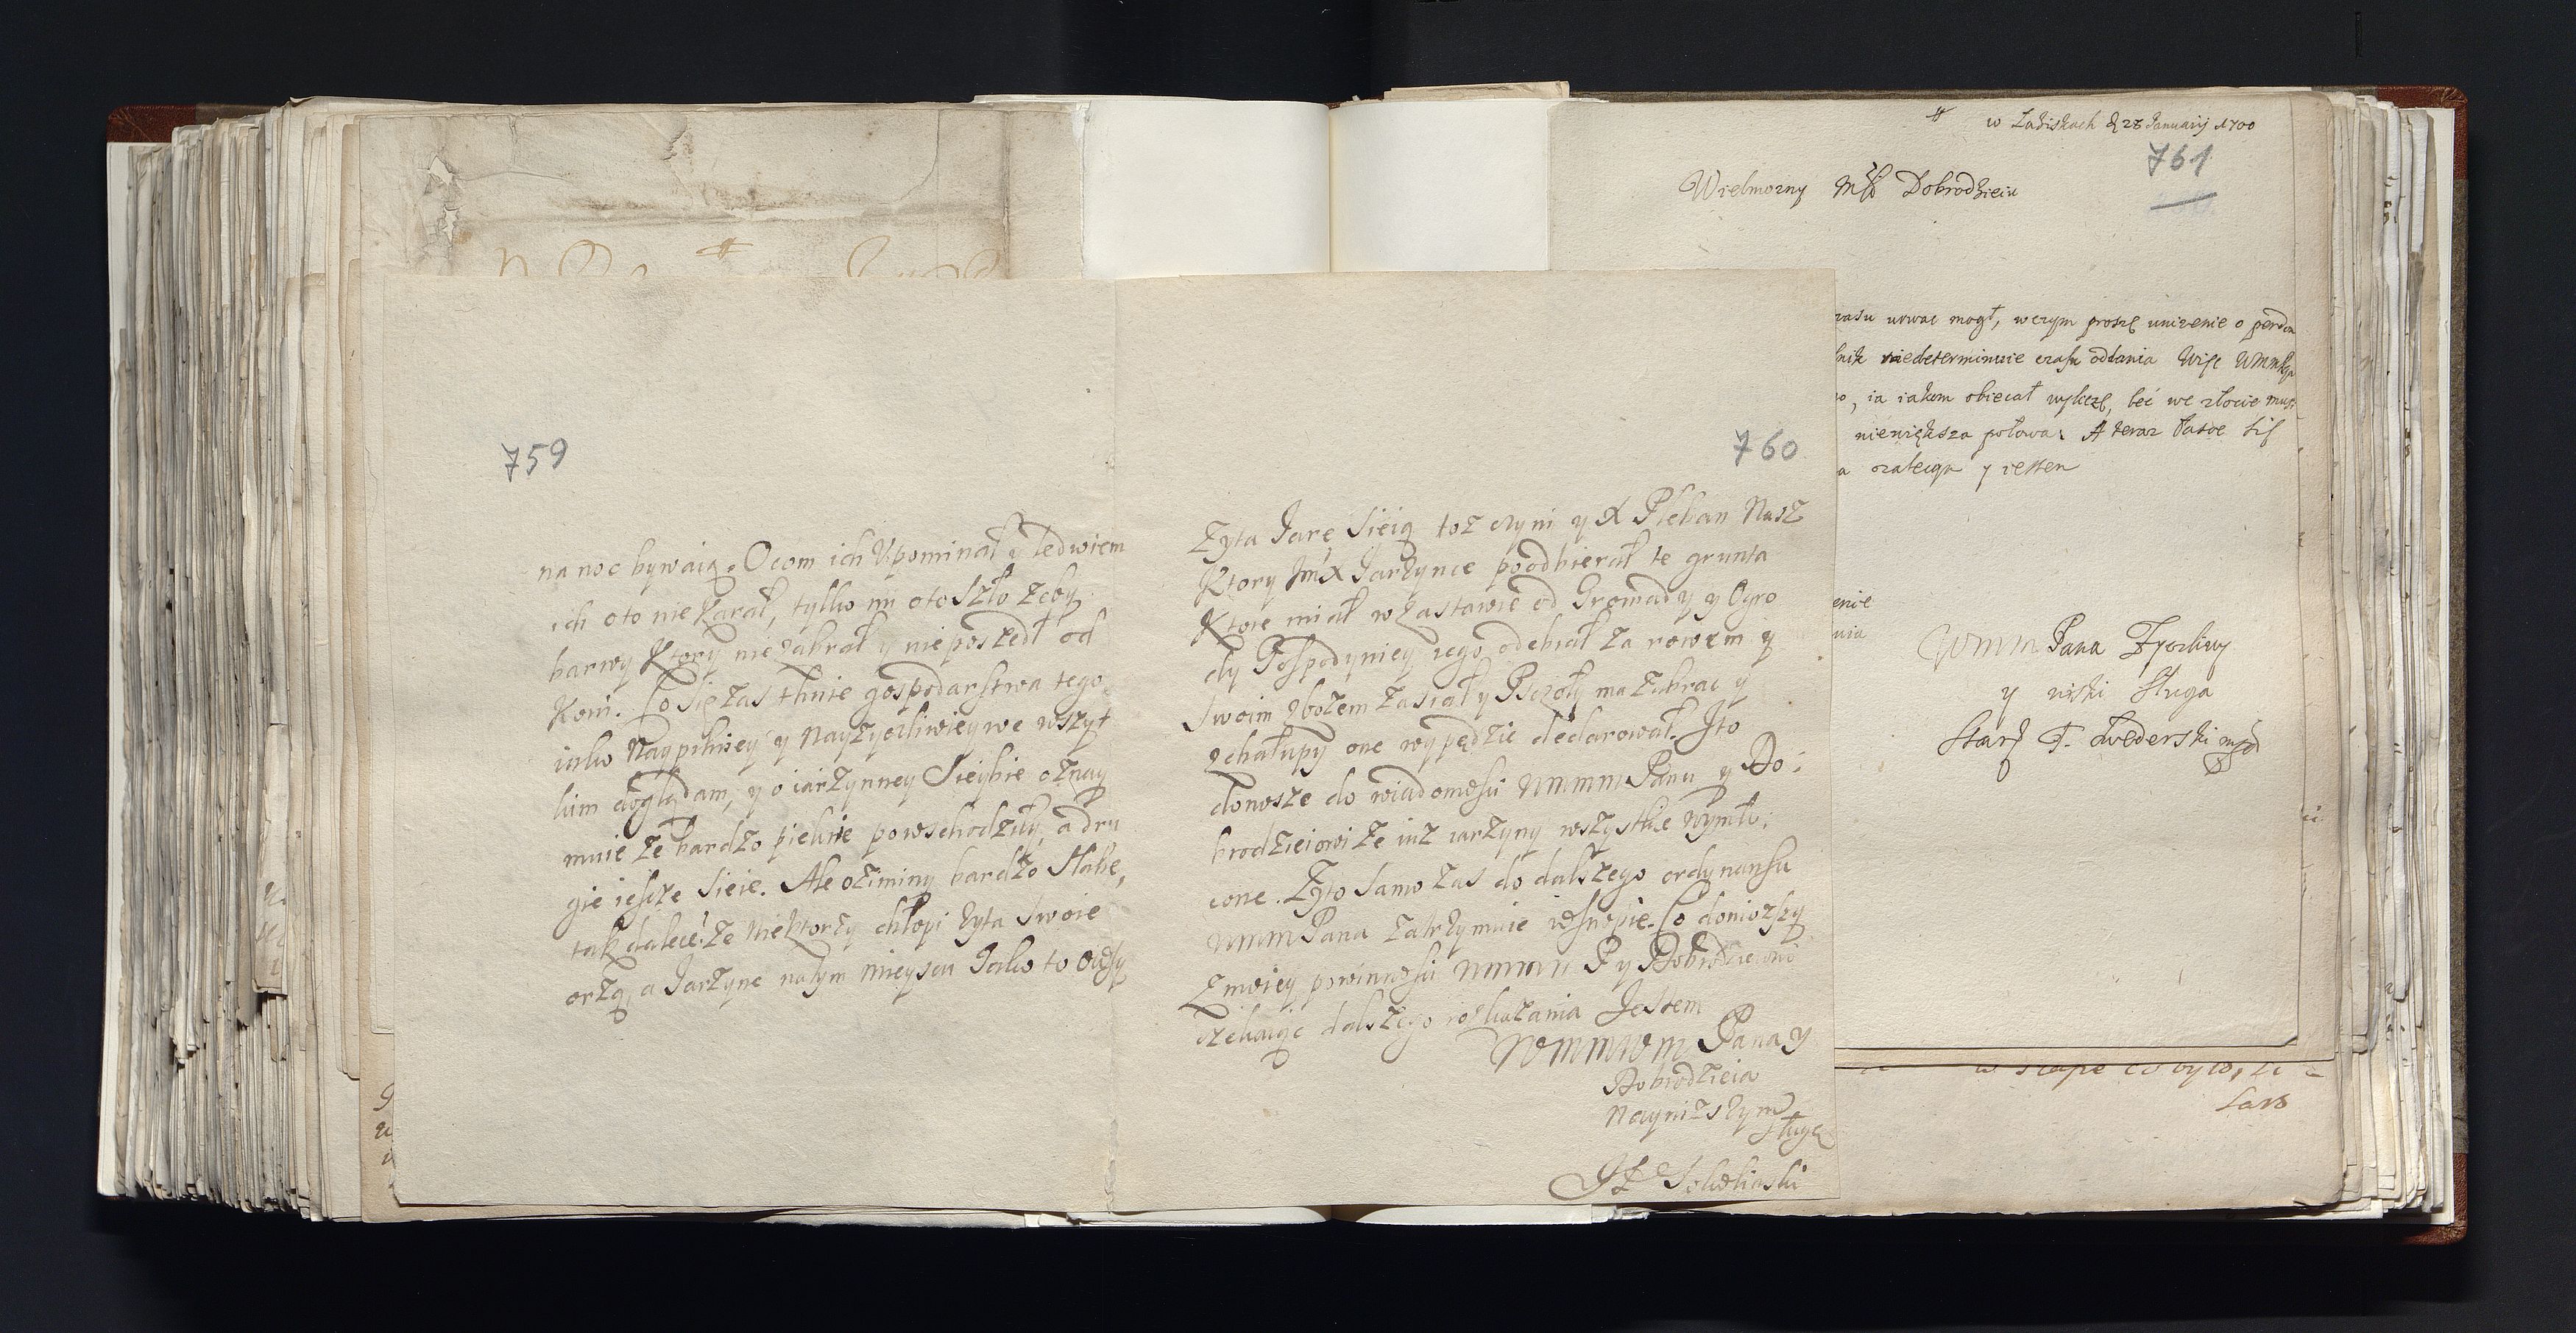 759
na noc bywaią. Ocom ich Upominał y ledwiem
ich oto nie karał, tylko mi oto szło żeby
barwy Ktory nie zabrał y nie poszedł od
Koni. Co się zas tknie gospodarstwa tego
iako Naypilniey y Nayżyczliwiey we wszyt
kim doglądam, y o iarzynney Sieybie oznay
muie że bardzo pieknie powschodziły, a dru
gie ieszcze Sieie. Ale oziminy bardzo słabe,
tak dalece że Niektorzy chłopi żyta swoie
orzą, a Jarzyne na tym mieyscu Jako to owsy
760
Zyta Jare Sieią toż czyni y X Pleban Nasz
Ktory Jm X Jarzynce poodbierał te grunta
Ktore miał w zastawie od Gromady y Ogro
dy Gospodyniey iego odebrał za rowem y
Swoim zbożem zasiał y Psczoły ma zabrac y
z chałupy one wypędzic declarował. Ito
donosze do wiadomosci WMMM Panu y Do:
brodzieiowi że iuż iarzyny wszystkie wymło:
cone. Zyto samo zas do dalszego ordynansu
WMM Pana zatrzymuie w snopie. Co doniozszy
Z moiey powinnosci WMMM P y Dobrodzieiowi
czekaiąc dalszego roskazania Jestem
WMMWM Pana y
Dobrodzieia
Nayniższym
sługą
w Laziskach d 28 Januarij 1700
761
Wielmozny Dobrodzieiu
urwac mogł, w czym proszę unizenie o perdon
niedeterminuie czasu oddania Więc
, ia iakom obiecał wyliczę, lec we złocie musi
nieniększa połowa: A teraz
y iestem
enie
nia
WMM Pana Zyczliwy
y niski Sługa